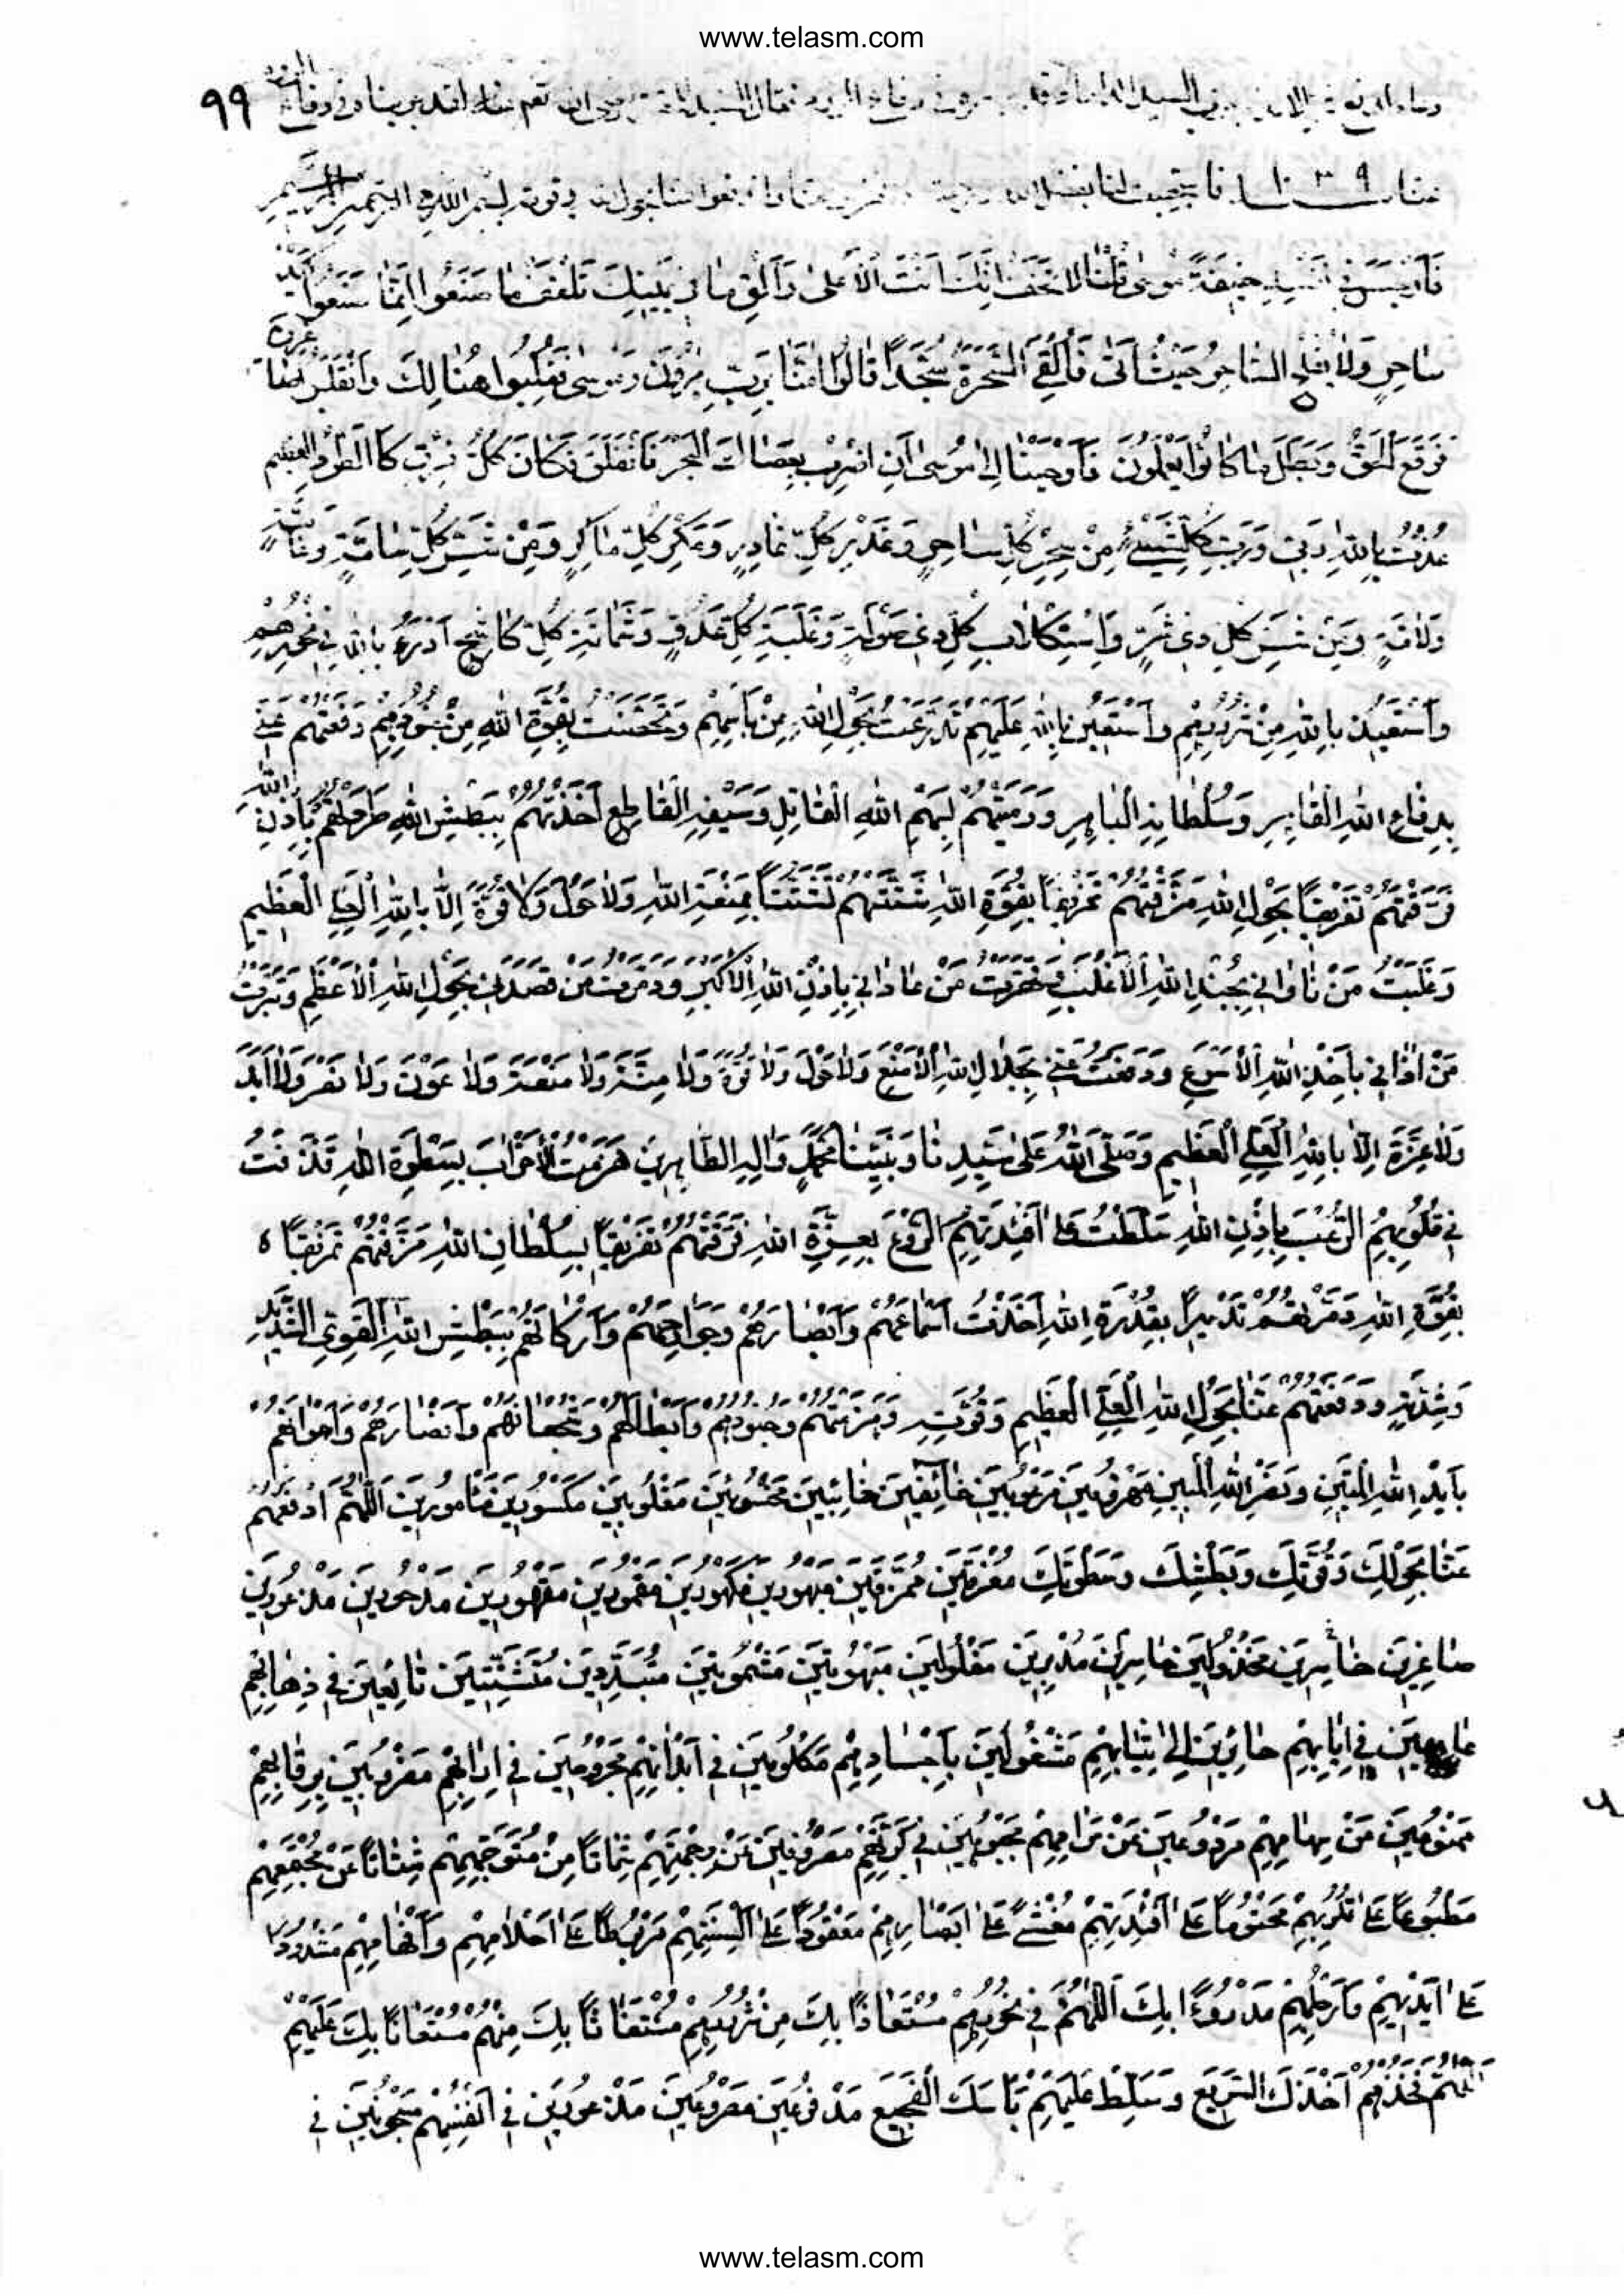 www.telasm.com
۹۹
بسم الله الرحمن الرحيم
فَأَوْجَسَ فِي نَفْسِهِ خِيفَةً مُوسىٰ قُلْنَا لَا تَخَفْ إِنَّكَ أَنْتَ الْأَعْلىٰ وَأَلْقِ مَا فِي يَمِينِكَ تَلْقَفْ مَا صَنَعُوا إِنَّمَا صَنَعُوا كَيْدُ
سَاحِرٍ وَلَا يُفْلِحُ السَّاحِرُ حَيْثُ أَتىٰ فَأُلْقِيَ السَّحَرَةُ سُجَّدًا قَالُوا آمَنَّا بِرَبِّ هٰرُونَ وَمُوسىٰ فَغُلِبُوا هُنَالِكَ وَانْقَلَبُوا صَاغِرِينَ
فَوَقَعَ الْحَقُّ وَبَطَلَ مَا كَانُوا يَعْمَلُونَ فَأَوْحَيْنَا إِلىٰ مُوسىٰ أَنِ اضْرِبْ بِعَصَاكَ الْبَحْرَ فَانْفَلَقَ فَكَانَ كُلُّ فِرْقٍ كَالطَّوْدِ الْعَظِيمِ
عُذْتُ بِاللهِ رَبِّي وَرَبِّ كُلِّ شَيْءٍ مِنْ سِحْرِ كُلِّ سَاحِرٍ وَغَدْرِ كُلِّ غَادِرٍ وَمَكْرِ كُلِّ مَاكِرٍ وَمِنْ شَرِّ كُلِّ سَامَّةٍ وَهَامَّةٍ
وَلَامَّةٍ وَمِنْ شَرِّ كُلِّ ذِي شَرٍّ وَاسْتِكْلَابِ كُلِّ ذِي صَوْلَةٍ وَغَلَبَةِ كُلِّ عَدُوٍّ وَشَمَاتَةِ كُلِّ كَاشِحٍ أَدْرَءُ بِاللهِ فِي نُحُورِهِمْ
وَأَسْتَعِيذُ بِاللهِ مِنْ شُرُورِهِمْ وَأَسْتَعِينُ بِاللهِ عَلَيْهِمْ تَدَرَّعْتُ بِحَوْلِ اللهِ مِنْ بَأْسِهِمْ وَتَحَصَّنْتُ بِقُوَّةِ اللهِ مِنْ دَفَعْتُهُمْ عَنِّي
بِدِفَاعِ اللهِ الْقَاهِرِ وَسُلْطَانِهِ الْبَاهِرِ وَرَمَيْتُهُمْ بِسَهْمِ اللهِ الْقَاتِلِ وَسَيْفِهِ الْقَاطِعِ أَخَذْتُهُمْ بِبَطْشِ اللهِ طَرَدْتُهُمْ بِإِذْنِ اللهِ
فَرَّقْتُهُمْ تَفْرِيقًا بِحَوْلِ اللهِ مَزَّقْتُهُمْ تَمْزِيقًا بِقُوَّةِ اللهِ شَتَّتُّهُمْ تَشْتِيتًا بِمَنْعَةِ اللهِ وَلَا حَوْلَ وَلَا قُوَّةَ إِلَّا بِاللهِ الْعَلِيِّ الْعَظِيمِ
وَغَلَبْتُ مَنْ نَاوَانِي بِجُنْدِ اللهِ الْأَغْلَبِ وَقَهَرْتُ مَنْ عَادَانِي بِإِذْنِ اللهِ الْأَكْبَرِ وَدَمَّرْتُ مَنْ قَصَدَنِي بِحَوْلِ اللهِ الْأَعْظَمِ وَتَبَّرْتُ
مَنْ آذَانِي بِأَخْذِ اللهِ الْأَسْرَعِ وَدَفَعْتُ عَنِّي بِجَلَالِ اللهِ الْأَمْنَعِ وَلَا حَوْلَ وَلَا قُوَّةَ وَلَا مِنَّةَ وَلَا مَنْعَةَ وَلَا عَوْنَ وَلَا نَصْرَ وَلَا أَيْدَ
وَلَا عِزَّةَ إِلَّا بِاللهِ الْعَلِيِّ الْعَظِيمِ وَصَلَّى اللهُ عَلىٰ سَيِّدِنَا وَنَبِيِّنَا مُحَمَّدٍ وَآلِهِ الطَّاهِرِينَ هَزَمْتُ الْأَحْزَابَ بِسَطْوَةِ اللهِ قَذَفْتُ
فِي قُلُوبِهِمُ الرُّعْبَ بِإِذْنِ اللهِ سَلَّطْتُ عَلىٰ أَفْئِدَتِهِمُ الرَّوْعَ بِعِزَّةِ اللهِ فَرَّقْتُهُمْ تَفْرِيقًا بِسُلْطَانِ اللهِ مَزَّقْتُهُمْ تَمْزِيقًا
بِقُوَّةِ اللهِ دَمَّرْتُهُمْ تَدْمِيرًا بِقُدْرَةِ اللهِ أَخَذْتُ أَسْمَاعَهُمْ وَأَبْصَارَهُمْ وَجَوَارِحَهُمْ وَأَرْكَانَهُمْ بِبَطْشِ اللهِ الْقَوِيِّ الشَّدِيدِ
وَشِدَّتِهِ وَدَفَعْتُهُمْ عَنَّا بِحَوْلِ اللهِ الْعَلِيِّ الْعَظِيمِ وَقُوَّتِهِ وَهَزَمْتُهُمْ وَجُنُودَهُمْ وَأَبْطَالَهُمْ وَشُجْعَانَهُمْ وَأَنْصَارَهُمْ وَأَعْوَانَهُمْ
بِأَيْدِ اللهِ الْمَتِينِ وَنَصْرِ اللهِ الْمُبِينِ مَهْزُومِينَ مَرْعُوبِينَ خَائِفِينَ خَائِبِينَ مَغْلُوبِينَ مَكْسُورِينَ مَأْسُورِينَ اللّٰهُمَّ ادْفَعْهُمْ
عَنَّا بِحَوْلِكَ وَقُوَّتِكَ وَبَطْشِكَ وَسَطْوَتِكَ مُمَزَّقِينَ مَقْهُورِينَ مَدْحُورِينَ مَذْعُورِينَ
صَاغِرِينَ خَاسِرِينَ مَخْذُولِينَ مُدْبِرِينَ مَغْلُولِينَ مَبْهُوتِينَ مَشْمُوتِينَ مُتَبَدِّدِينَ مُتَشَتِّتِينَ تَائِهِينَ فِي ذِهَابِهِمْ
عَامِهِينَ فِي إِيَابِهِمْ حَائِرِينَ مَشْغُولِينَ بِأَجْسَادِهِمْ مَكْلُومِينَ فِي أَبْدَانِهِمْ مَجْرُوحِينَ مَضْرُوبِينَ بِرِقَابِهِمْ
مَمْنُوعِينَ عَنْ سِهَامِهِمْ مَرْدُوعِينَ عَنْ مَرَامِهِمْ فِي كَرَّتِهِمْ مَصْرُوفِينَ عَنْ وِجْهَتِهِمْ شَتَاتًا عَنْ مُجْتَمَعِهِمْ
مَطْبُوعًا عَلىٰ قُلُوبِهِمْ مَخْتُومًا عَلىٰ أَفْئِدَتِهِمْ مُغْشًى عَلىٰ أَبْصَارِهِمْ مَعْقُودًا عَلىٰ أَلْسِنَتِهِمْ مَرْبُوطًا عَلىٰ أَحْلَامِهِمْ وَأَفْهَامِهِمْ مَشْدُودًا
عَلىٰ أَيْدِيهِمْ وَأَرْجُلِهِمْ مَدْرُوءًا بِكَ اللّٰهُمَّ فِي نُحُورِهِمْ مُسْتَعَاذًا بِكَ مِنْ شُرُورِهِمْ مُسْتَغَاثًا بِكَ مِنْهُمْ مُسْتَعَانًا بِكَ عَلَيْهِمْ
اللّٰهُمَّ فَخُذْهُمْ أَخْذَكَ السَّرِيعَ وَسَلِّطْ عَلَيْهِمْ بَأْسَكَ الْفَجِيعَ مَدْفُوعِينَ مَصْرُوعِينَ مَذْعُورِينَ فِي أَنْفُسِهِمْ فِي
www.telasm.com